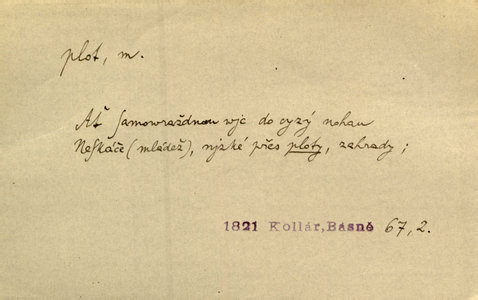 plot, m.
Ať samowraždnau wjc do cyzý nohau
Neskáče (mládež), njzké přes ploty, zahrady;
1821 Kollár, Básně 67,2.